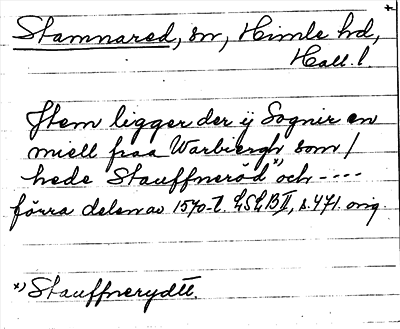 *
Stamnared, sn, Himle hd,
Hall. l
Jtem ligger der ij Sognir en
miell fraa Warbiergh som /
hede Stauffneröd*) och ----
förra delen av 1570-t. LSLB II, s. 471. orig.
*) Stauffnerydtt.